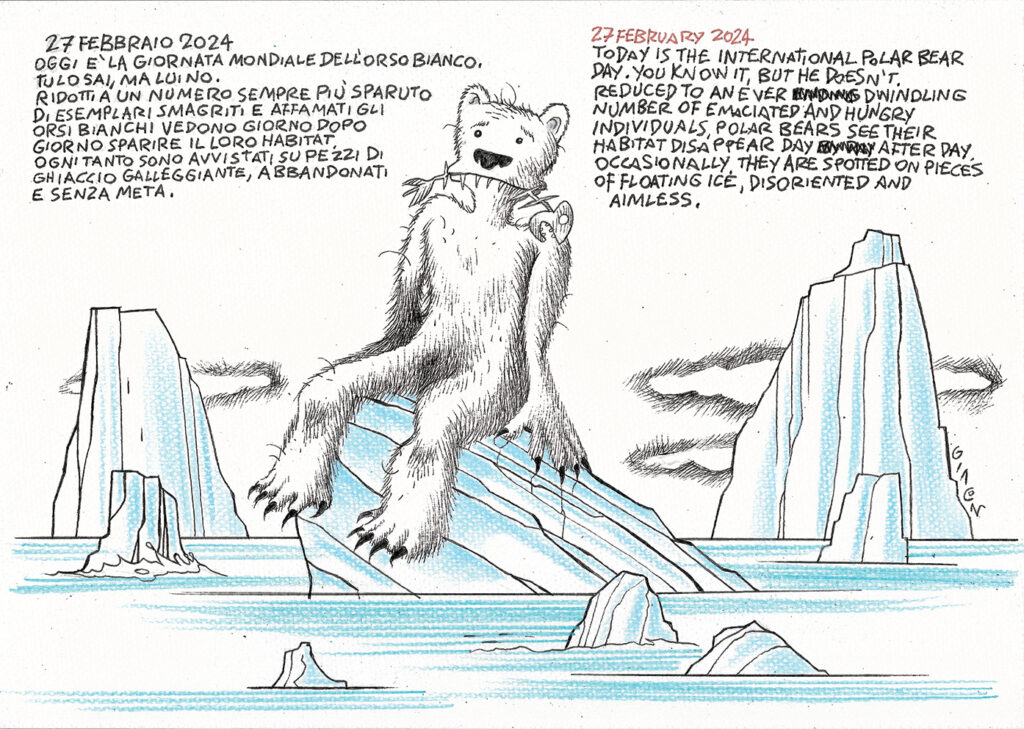 27 FEBBRAIO 2024
OGGI E' LA GIORNATA MONDIALE DELL'ORSO BIANCO.
TU LO SAI, MA LUI NO.
RIDOTTI A UN NUMERO SEMPRE PIÙ SPARUTO
DI ESEMPLARI SMAGRITI E AFFAMATI GLI
ORSI BIANCHI VEDONO GIORNO DOPO
GIORNO SPARIRE IL LORO HABITAT.
OGNI TANTO SONO AVVISTATI SU PEZZI DI
GHIACCIO GALLEGGIANTE, ABBANDONATI
E SENZA META.
27 FEBRUARY 2024
TODAY IS THE INTERNATIONAL POLAR BEAR
DAY. YOU KNOW IT, BUT HE DOESN'T.
REDUCED TO AN EVER DWINDLING
NUMBER OF EMACIATED AND HUNGRY
INDIVIDUALS, POLAR BEARS SEE THEIR
HABITAT DISAPPEAR DAY AFTER DAY.
OCCASIONALLY, THEY ARE SPOTTED ON PIECES
OF FLOATING ICE, DISORIENTED AND
AIMLESS.
GIACON